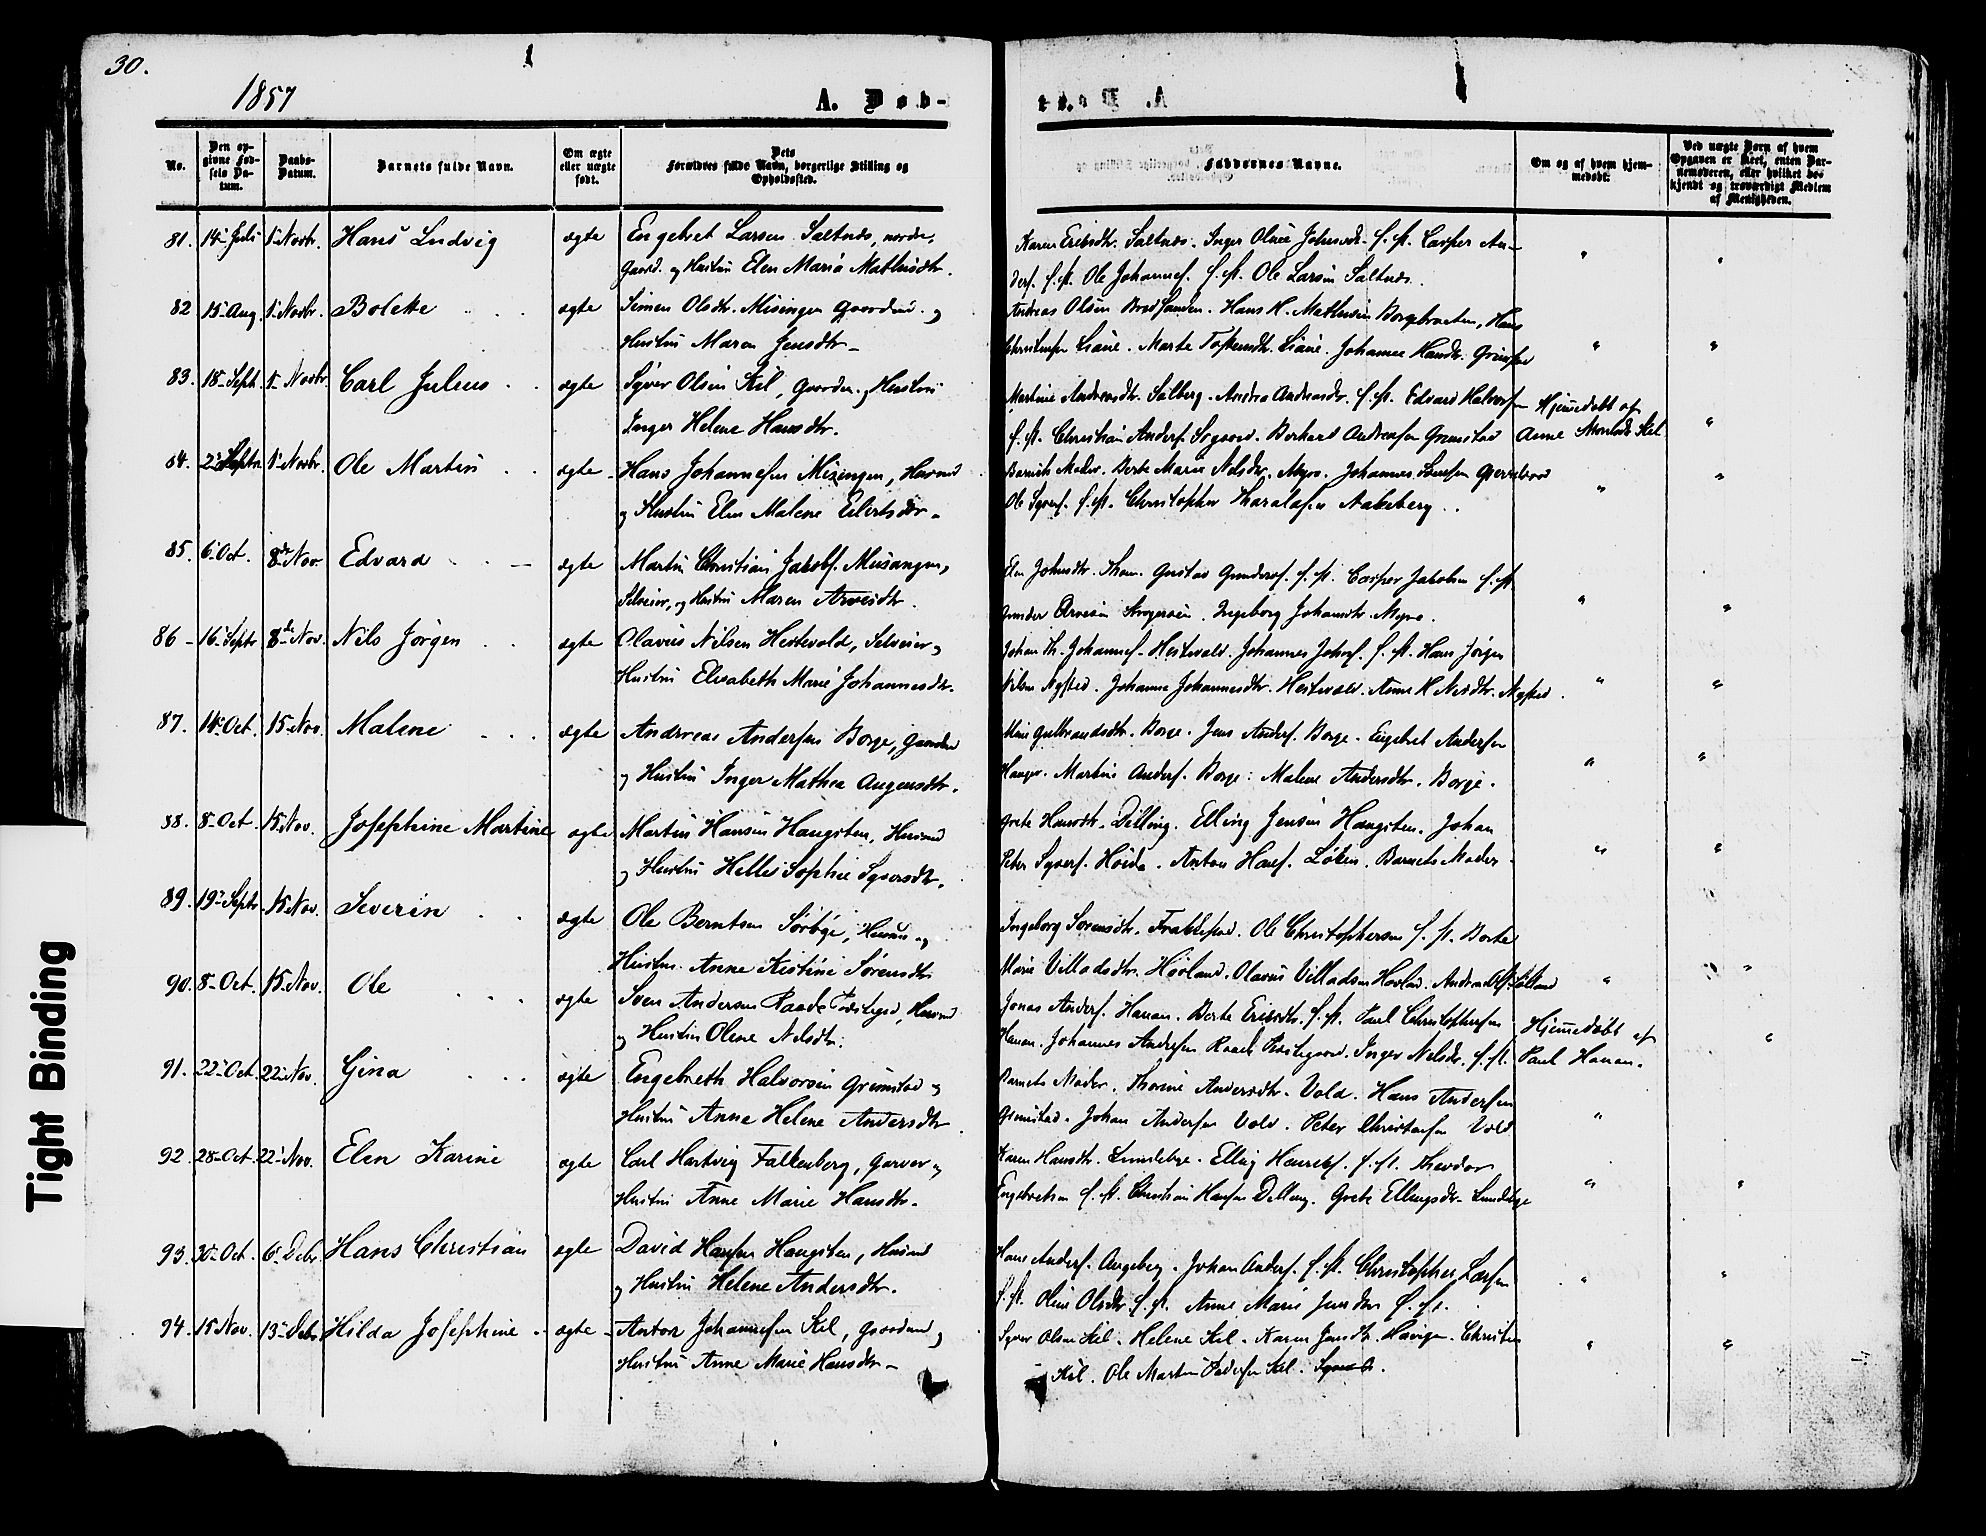 30.
1857
A. Døb-
No.
Den op-
givne Fød-
sels Da-
tum.
Daabs-
Datum.
Barnets fulde Navn.
Om ægte
eller uægte
født.
Dets
Forældres fulde Navn, borgerlige Stilling og
Opholdssted.
Faddernes Navne.
Om og af hvem hjem-
medøbt.
Ved uægte Børn af hvem
Opgaven er skeet, enten Bar-
nemoderen, eller hvilket be-
kjendt og troværdigt Medlem
af Menigheden.
81. 14 Juli 1 Novbr. Hans Ludvig ægte Engebret Larsen Saltnes, nordre,
Gaard. og Hustru Elen Maria Mathisdtr.
Karen Ericsdtr. Saltnes. Inger Olina Johnsdtr. s. st. Casper An-
ders. s. st. Ole Johannes. s. st. Ole Larsen Saltnes.
82 15 Aug. 1 Novbr. Bolette ægte Simen Olsen Misingen Gaardm. og
Hustru Maren Jensdtr
Andreas Olsen Brødsanden. Hans H. Mathisen Borgebraaten, Hans
Christensen Liane. Marte Liane. Johanne Hansdtr.
83. 18 Sept. 1 Novbr. Carl Julius ægte Syver Olsen Kil, Gaardm. og Hustru
Inger Helene Hansdtr.
Martine Andreasdtr. Salberg. Andrea Andreasdtr. s. st. Edvard Halvorsen
s. st. Christian Anders. Bernhard Andreasen Grimstad
Hjemmedøbt af
Anne Kil
84. Septr 1 Novbr. Ole Martin ægte Hans Johannesen Misingen, Husmd
og Hustru Elen Malene Eilertsdtr
Barnets Moder. Berte Marie Nilsdtr. Myra. Johannes
Ole Syvers. s. st. Christopher Haralds. Aakeberg
85. 6 Oct. 8de Nov. Edvard ægte Martin Christian Jakobs. Misangen,
Selveier, og Hustru Maren Arvesdtr.
Elen Johnsdtr. Gustav Gunders. s. st. Casper Jakobsen s. st.
Gunder Arvesen Ingeborg Johannsdtr. Myra.
86 16 Septr 8de Nov. Nils Jørgen ægte Olavus Nilsen Hestevold, Selveier og
Hustru Elisabeth Marie Johannesdtr.
Johan Th. Johannes. Hestevold. Johannes Johns. s. st. Hans Jørgen
Nilsen Nysted. Johanne Johannesdtr. Hestevold. Anne M Nilsdtr. Nysted.
87. 14 Oct. 15 Nov. Malene ægte Andreas Andersen Borge, Gaardmd
og Hustru Inger Mathea Augensdtr.
Gulbrandsdtr. Borge. Jens Anders. Borge. Engebret Andersen
Hauger. Martin Anders. Borge. Malene Andersdtr. Borge.
88. 8 Oct. 15 Nov. Josephine Martine ægte Martin Hansen Haugsten, Husmd
og Hustru Helle Sophie Syversdtr.
Grete Hansdtr. Dilling. Elling Jensen Haugsten. Johan
Peter Syvers. Høida. Anton Hans. Løken. Barnets Moder
89. 19 Septr 15 Nov. Severin ægte Ole Berntsen Sørbye, Husmd og
Hustru Anne Kistine Sørensdtr
Ingeborg Sørensdtr. Ole Christophersen s. st. Berte
Marie Villadsdtr. Hovland. Olavus Villadsen Hovland.
90. 8 Oct. 15 Nov. Ole ægte Sven Andersen Raade Præstegrd, Husmd
og Hustru Olene Nilsdtr.
Jonas Anders. Hanan. Berte Ericsdtr. s. st. Paul Christophersen
Hanan. Johannes Andersen Raade Præstegaard. Inger Nilsdtr. s. st.
Hjemmedøbt af
Paul Hanan.
91. 22 Oct. 22 Nov. Gina ægte Engebreth Halvorsen Grimstad og
Hustru Anne Helene Andersdtr.
Barnets Moder. Thorine Andersdtr. Vold. Hans Andersen
Grimstad. Johan Andersen Vold. Peter Christensen Vold.
92. 28 Oct. 22 Nov. Elen Karine ægte Carl Hartvig Falkenberg, Garver og
Hustru Anne Marie Hansdtr.
Karen Hansdtr. Lundebye. Elling Henriks. s. st. Theodor
Engebretsen s. st. Christian Hansen Dilling. Grete Ellingsdtr. Lundebye
93. 30 Oct. 6 Debr. Hans Christian ægte David Hansen Haugsten, Husmd
og Hustru Helene Andersdtr.
Hans Anders. Augeberg. Johan Anders. s. st. Christopher Larsen
s. st. Oline Olsdtr. s. st. Anne Marie Jensdtr s. st.
94. 15 Nov. 13 Debr. Hilda Josephine ægte Anton Johannesen Kil, Gaardmd og
Hustru Anne Marie Hansdtr
Syver Olsen Kil. Helene Kil. Karen Jensdtr. Christen
Kil. Ole Martin Pedersen Kil.
Tight Binding